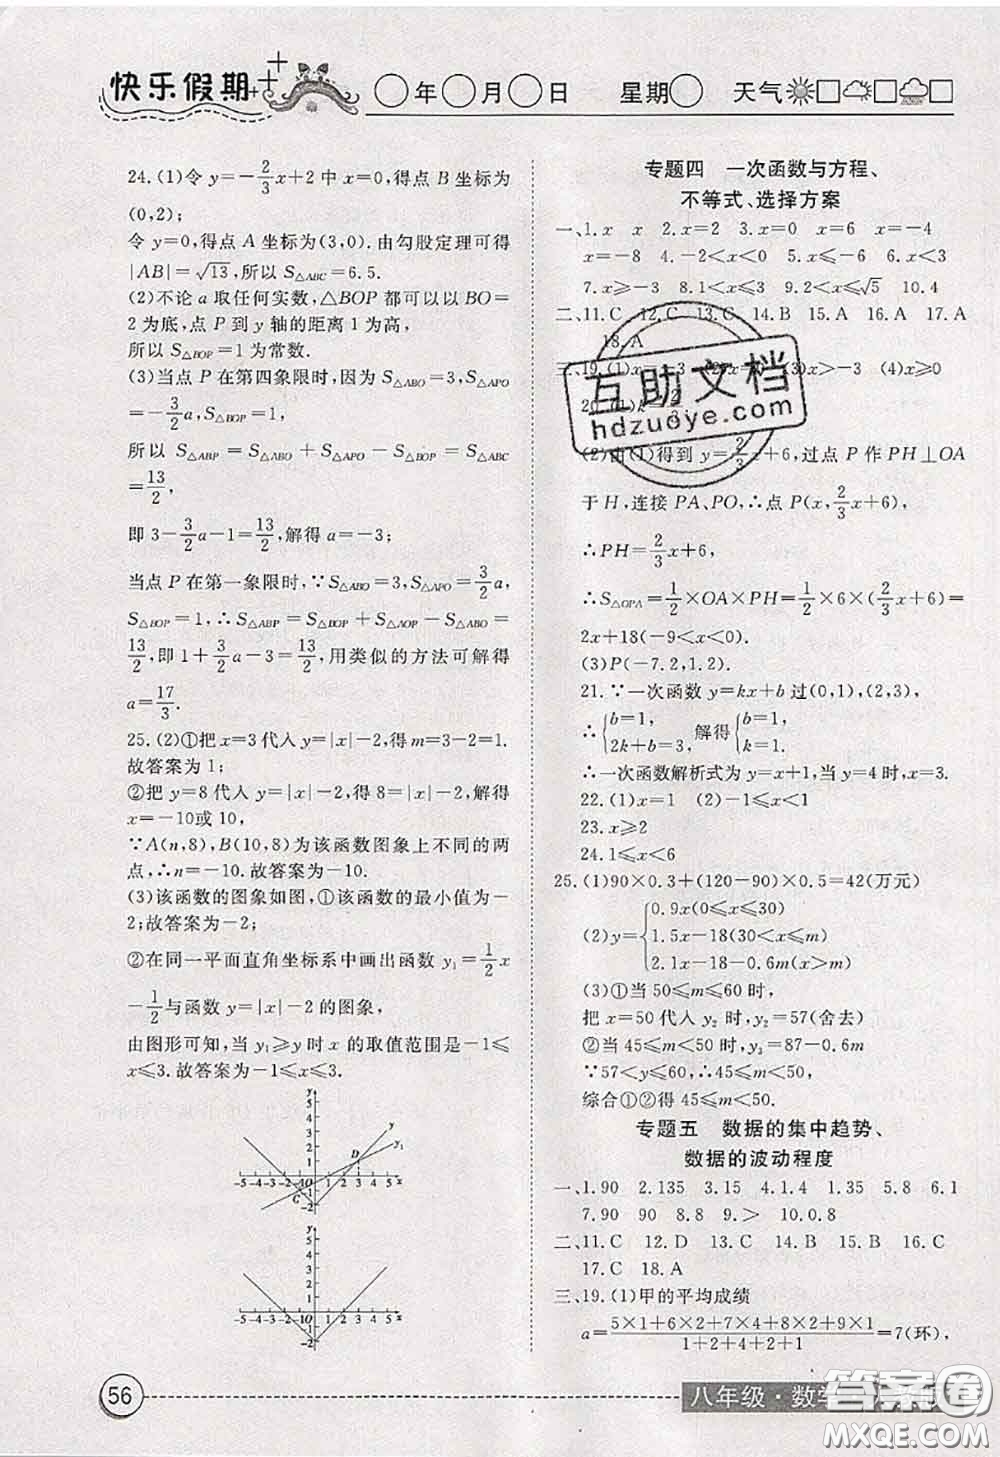 快乐假期
年 月 日 星期 天气
24.(1)令 y=-2/3x+2 中 x=0,得点 B 坐标为
(0,2);
令 y=0,得点 A 坐标为(3,0).由勾股定理可得
|AB|=√13,所以 S△ABC=6.5.
(2)不论 a 取任何实数,△BOP 都可以以 BO=
2 为底,点 P 到 y 轴的距离 1 为高,
所以 S△BOP=1 为常数.
(3)当点 P 在第四象限时,因为 S△ABO=3,S△APO
=-3/2a,S△BOP=1,
所以 S△ABP=S△ABO+S△APO-S△BOP=S△ABC
=13/2,
即 3-3/2a-1=13/2,解得 a=-3;
当点 P 在第一象限时,∵S△ABO=3,S△APO=3/2a,
S△BOP=1,∴S△ABP=S△BOP+S△AOP-S△ABO=
13/2,即 1+3/2a-3=13/2,用类似的方法可解得
a=17/3.
25.(2)①把 x=3 代入 y=|x|-2,得 m=3-2=1.
故答案为 1;
②把 y=8 代入 y=|x|-2,得 8=|x|-2,解得
x=-10或 10,
∵A(n,8),B(10,8)为该函数图象上不同的两
点,∴n=-10.故答案为-10.
(3)该函数的图象如图,①该函数的最小值为-
2;故答案为-2;
②在同一平面直角坐标系中画出函数 y₁=1/2x
-1/2与函数 y=|x|-2 的图象,
由图形可知,当 y₁≥y 时 x 的取值范围是-1≤
x≤3.故答案为-1≤x≤3.
y
5
4
3
2
1
-5-4-3-2-1O 1 2 3 4 5 x
-1
-2
y₁
D
C
y
5
4
3
2
1
-5-4-3-2-1O 1 2 3 4 5 x
-1
-2
专题四 一次函数与方程、
不等式、选择方案
一、1.x x 2.x=2 3.x=0 x=-4
x=-8 4.-2<x<0 5.x≥2 6.x<3
7.x≥-3 8.1<x<3 9.2<x≤√5 10.4
二、11.C 12.C 13.C 14.B 15.A 16.A 17.A
18.A
三、19.(1)x=-3 (2)x=0 (3)x>-3 (4)x≥0
20.(1)k=2/3
(2)由(1)得到 y=2/3x+6,过点 P 作 PH⊥OA
于 H,连接 PA、PO,∴点 P(x,2/3x+6),
∴PH=2/3x+6,
∴S△OPA=1/2×OA×PH=1/2×6×(2/3x+6)=
2x+18(-9<x<0).
(3)P(-7.2,1.2).
21.∵一次函数 y=kx+b 过(0,1),(2,3),
∴{b=1, 2k+b=3, 解得{k=1, b=1.
∴一次函数解析式为 y=x+1,当 y=4 时,x=3.
22.(1)x=1 (2)-1≤x<1
23.x≥2
24.1≤x<6
25.(1)90×0.3+(120-90)×0.5=42(万元)
(2)y={0.9x(0≤x≤30)
1.5x-18(30<x≤m)
2.1x-18-0.6m(x>m)
(3)①当 50≤m≤60 时,
把 x=50 代入 y₂ 时,y₂=57(舍去)
②当 45≤m≤50 时,y₃=87-0.6m
∵57<y≤60,∴45≤m<50
综合①②得 45≤m<50.
专题五 数据的集中趋势、
数据的波动程度
一、1.90 2.135 3.15 4.1.4 1.35 5.8 6.1
7.90 90 8.8 9.> 10.0.8
二、11.C 12.D 13.C 14.B 15.B 16.C
17.C 18.A
三、19.(1)甲的平均成绩
a=(5×1+6×2+7×4+8×2+9×1)/(1+2+4+2+1)=7(环),
互助文档
hdzuoye.com
56
八年级·数学
答案卷
MXQE.COM